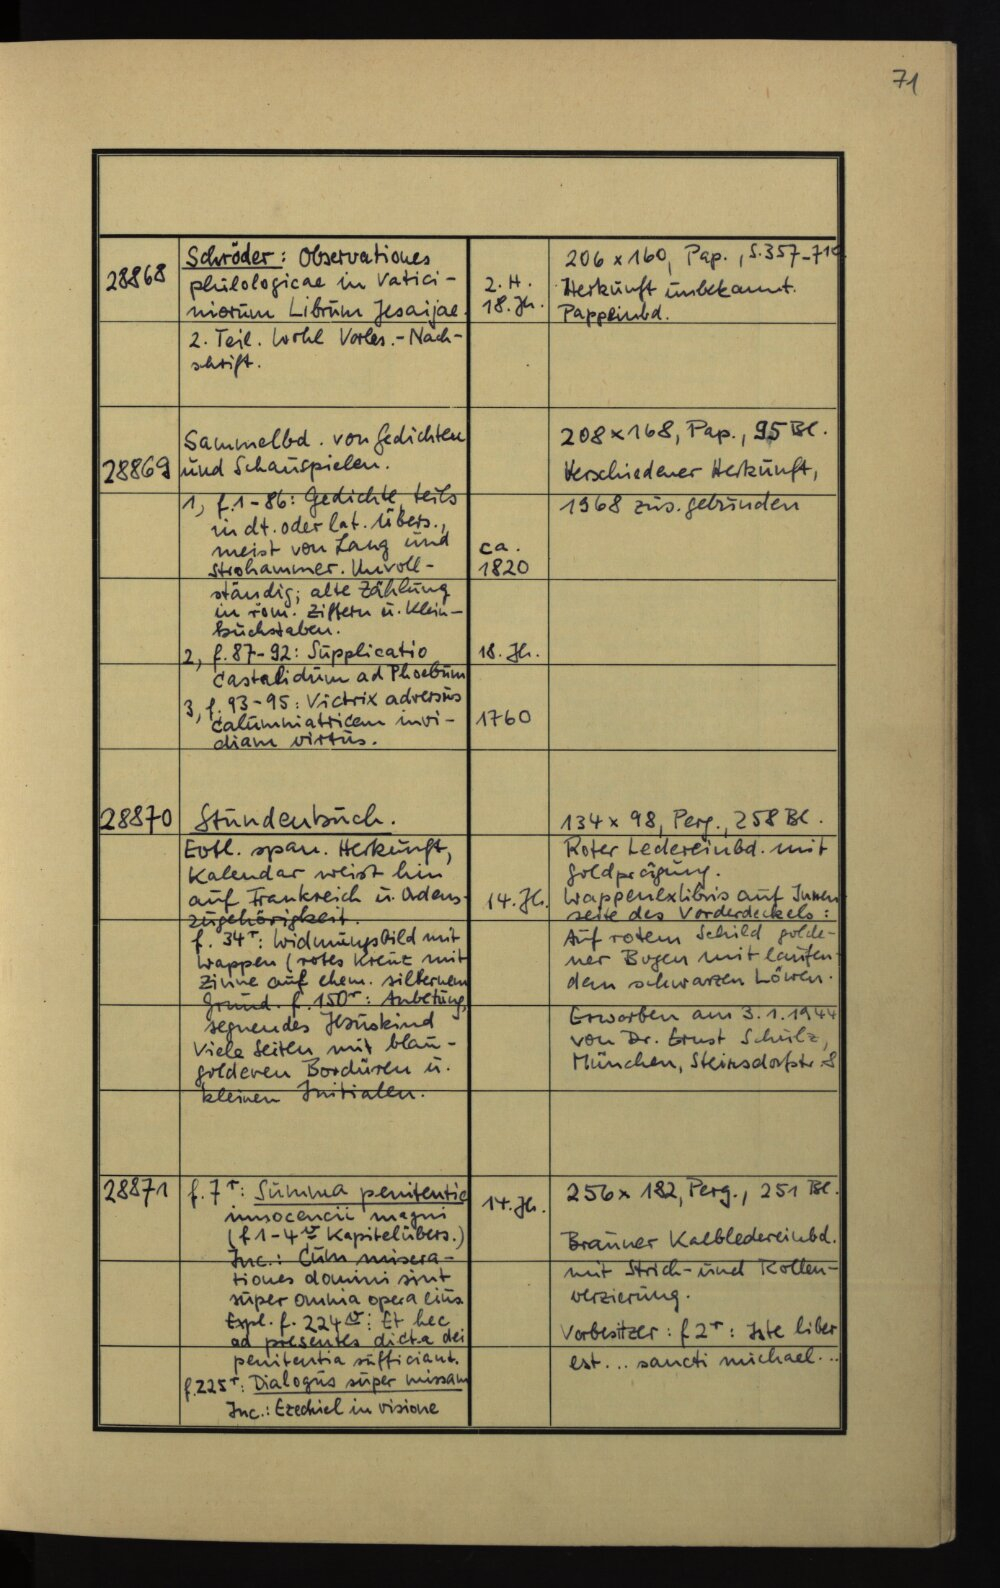 71
28868
Schröder: Observationes
philologicae in Vatici-
niorum Librum Jesaijae.
2. Teil. Wohl Vorles.-Nach-
schrift.
2. H.
18. Jh.
206 x 160, Pap., S. 357-
Herkunft unbekannt.
Pappeinbd.
28869
Sammelbd. von Gedichten
und Schauspielen.
1, f. 1-86: Gedichte, teils
in dt. oder lat. Übers.,
meist von Lang und
Strohammer. Unvoll-
ständig; alte Zählung
in röm. Ziffern u. Klein-
buchstaben.
2, f. 87-92: Supplicatio
Castalidum ad Phoebum
3, f. 93-95: Victrix adversus
calumniatricem invi-
diam virtus.
ca.
1820
18. Jh.
1760
208 x 168, Pap., 95 Bl.
Verschiedener Herkunft,
1968 zus. gebunden
28870
Stundenbuch.
Evtl. span. Herkunft,
Kalendar weist hin
auf Frankreich u. Ordens-
zugehörigkeit.
f. 34r: Widmungsbild mit
Wappen (rotes Kreuz mit
Zinne auf ehem. silbernem
Grund. f. 150r: Anbetung,
segnendes Jesuskind
Viele Seiten mit blau-
goldenen Bordüren u.
kleinen Initialen.
14. Jh.
134 x 98, Perg., 258 Bl.
Roter Ledereinbd. mit
Goldprägung.
Wappenexlibris auf Innen
seite des Vorderdeckels:
Auf rotem Schild golde-
ner Bogen mit laufen-
dem schwarzen Löwen.
Erworben am 3.1.1944
von Dr. Ernst Schulz,
München, Steinsdorfstr. 8
28871
f. 7r: Summa penitentie
innocencii magni
(f. 1-4v Kapitelübers.)
Inc.: Cum misera-
tiones domini sint
super omnia opera eius
Expl. f. 224v: Et hec
ad presentes dicta dei
penitentia sufficiant.
f. 225r: Dialogus super missam
Inc.: Ezechiel in visione
14. Jh.
256 x 182, Perg., 251 Bl.
Brauner Kalbledereinbd.
mit Strich- und Rollen-
verzierung.
Vorbesitzer: f. 2r: Iste liber
est... sancti michael...